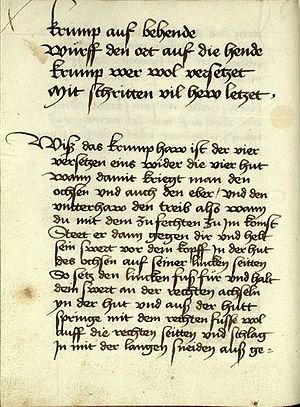 krump auf behende
würff den ort auf die hende
krump wer wol versetzet
Mit schritten vil hew letzet,
Wiß das krumphaw ist der vier
versetzen eins wider die vier hut
wann damit kriegt man den
ochsen und auch den eber / und den
unterhaw den treib also wann
du mit dem zufechten zu im komst
Steet er dann gegen dir und helt
sein swert vor dem kopff in der hut
des ochsen auf seiner lincken seitten
So setz den lincken fuß für und halt
dein swert an der rechten achseln
yn der hut und auß der hutt
springe mit dem rechten fusse wol
auff die rechten seitten und schlag
in mit der langen sneiden auß ge-